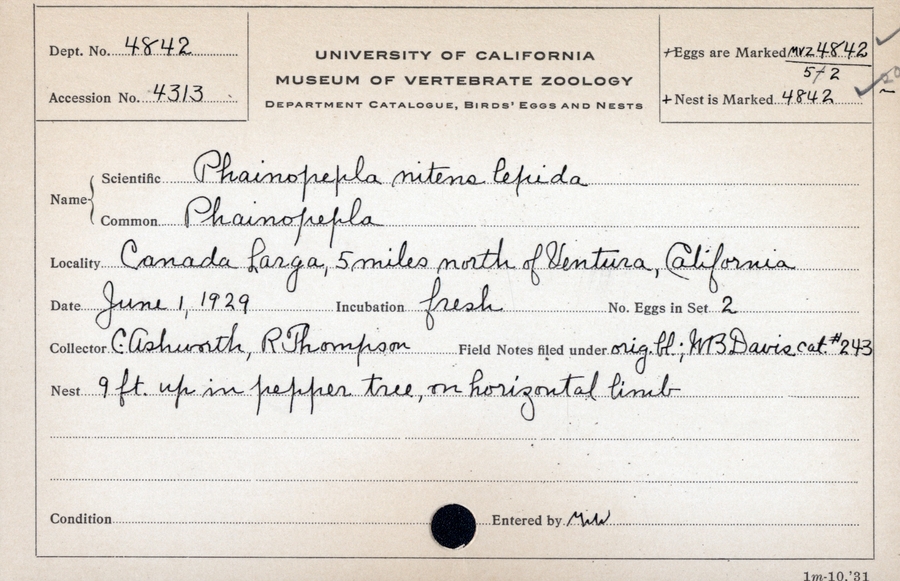 Dept. No. 4842
Accession No. 4313
UNIVERSITY OF CALIFORNIA
MUSEUM OF VERTEBRATE ZOOLOGY
DEPARTMENT CATALOGUE, BIRDS' EGGS AND NESTS
+Eggs are Marked MVZ 4842
5/2
+Nest is Marked 4842
Name
Scientific Phainopepla nitens lepida
Common Phainopepla
Locality Canada Larga, 5 miles north of Ventura, California
Date June 1, 1929 Incubation fresh No. Eggs in Set 2
Collector C Ashworth, R Thompson Field Notes filed under orig. bl.; WB Davis cat. #243
Nest 9 ft. up in pepper tree, on horizontal limb
Condition Entered by
1m-10,'31